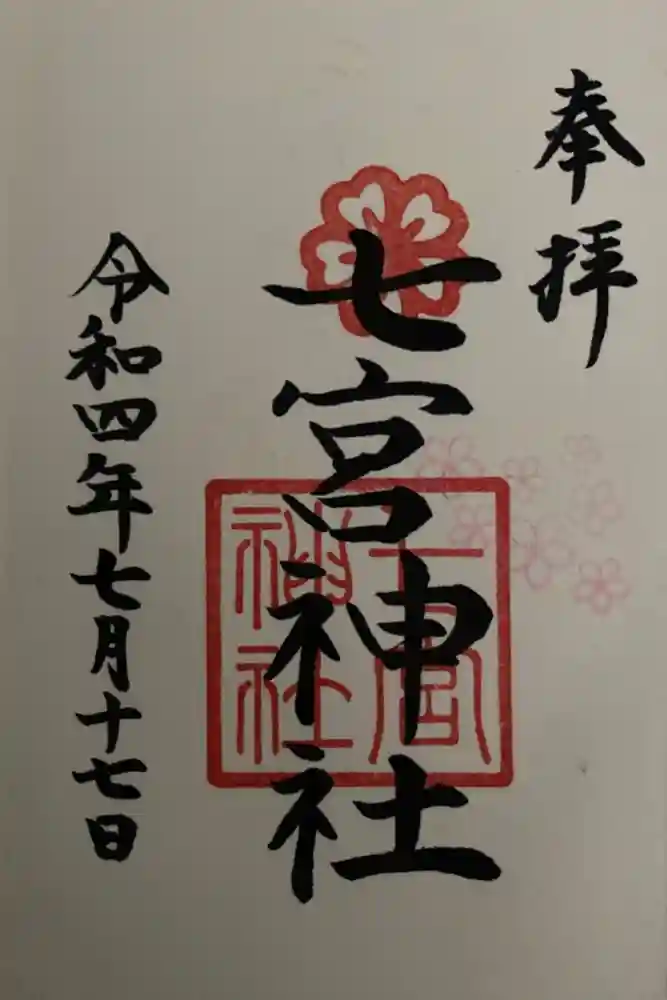 奉拝
七宮神社
七宮
神社
令和四年七月十七日